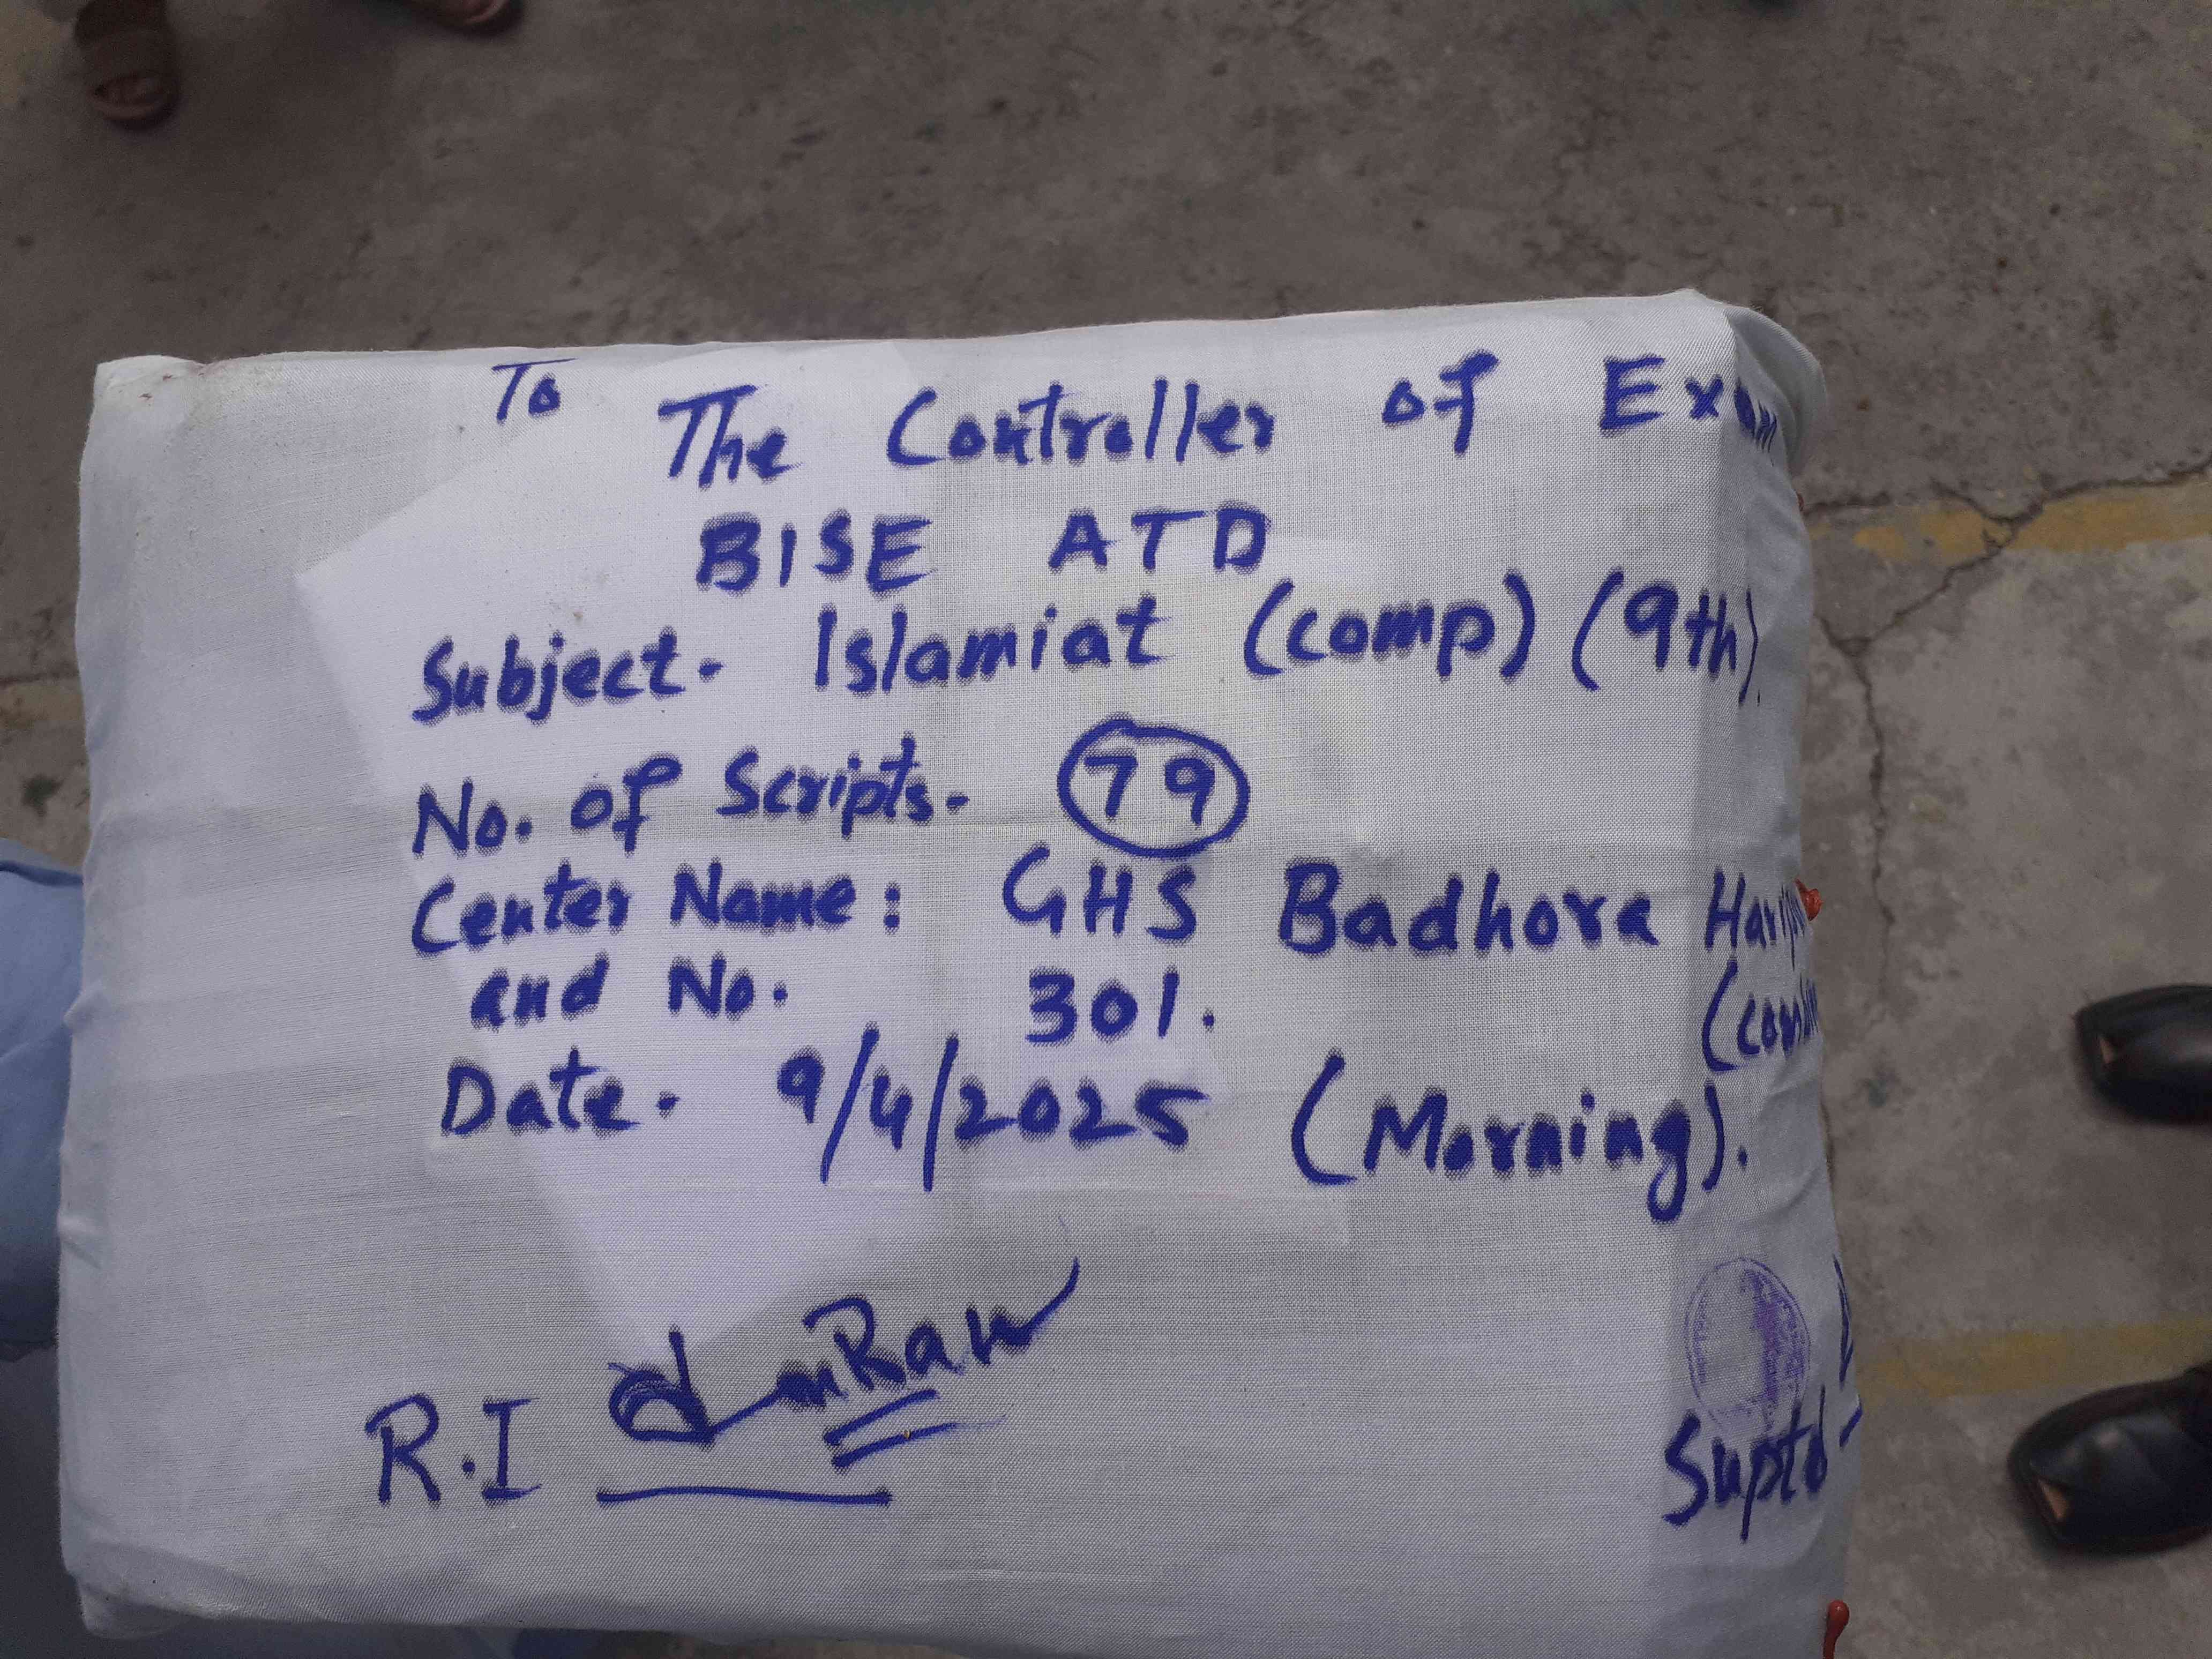 To
The Controller of Exam
BISE ATD
Subject. Islamiat (comp) (9th).
No. of Scripts. 79
Center Name: GHS Badhora
and No. 301.
Date. 9/4/2025 (Morning).
R.I
Suptd